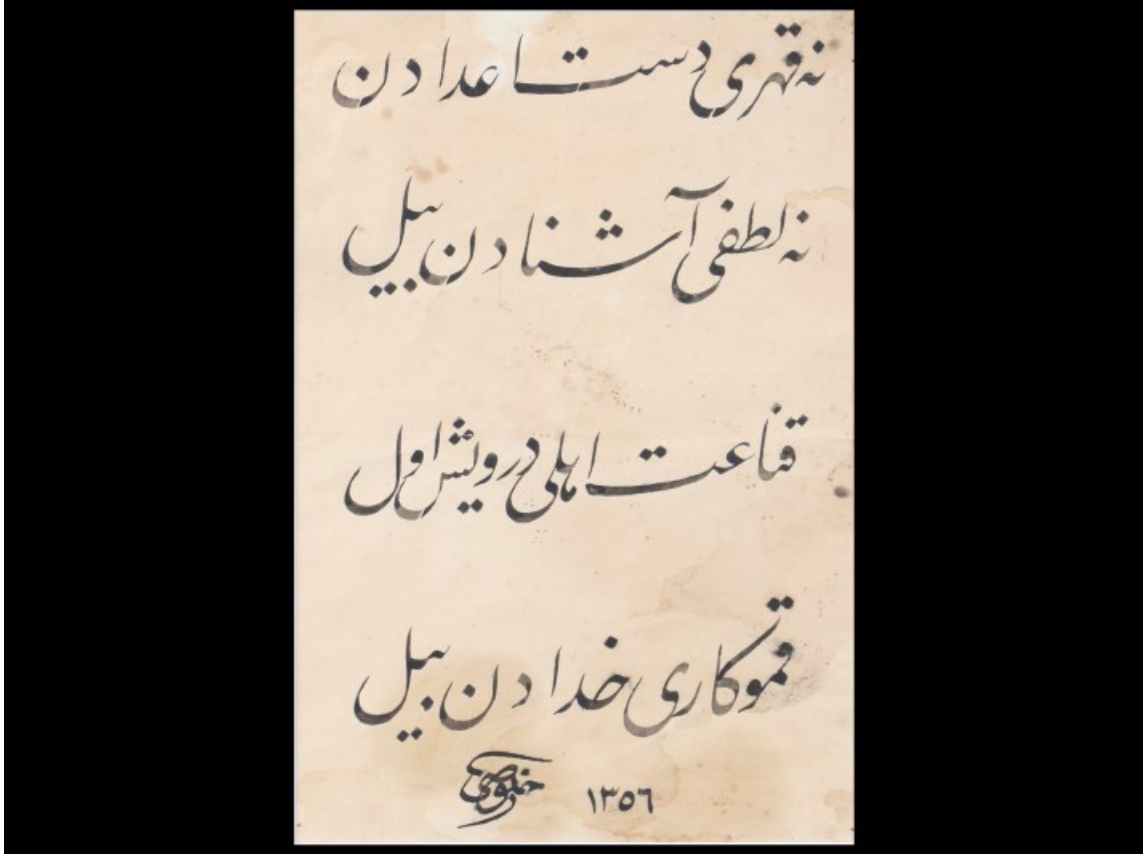 نه قهری دست اعدادن
نه لطفی آشنادن بیل
قناعت اهلی درویش اول
قمو کاری خدادن بیل
١٣٥٦